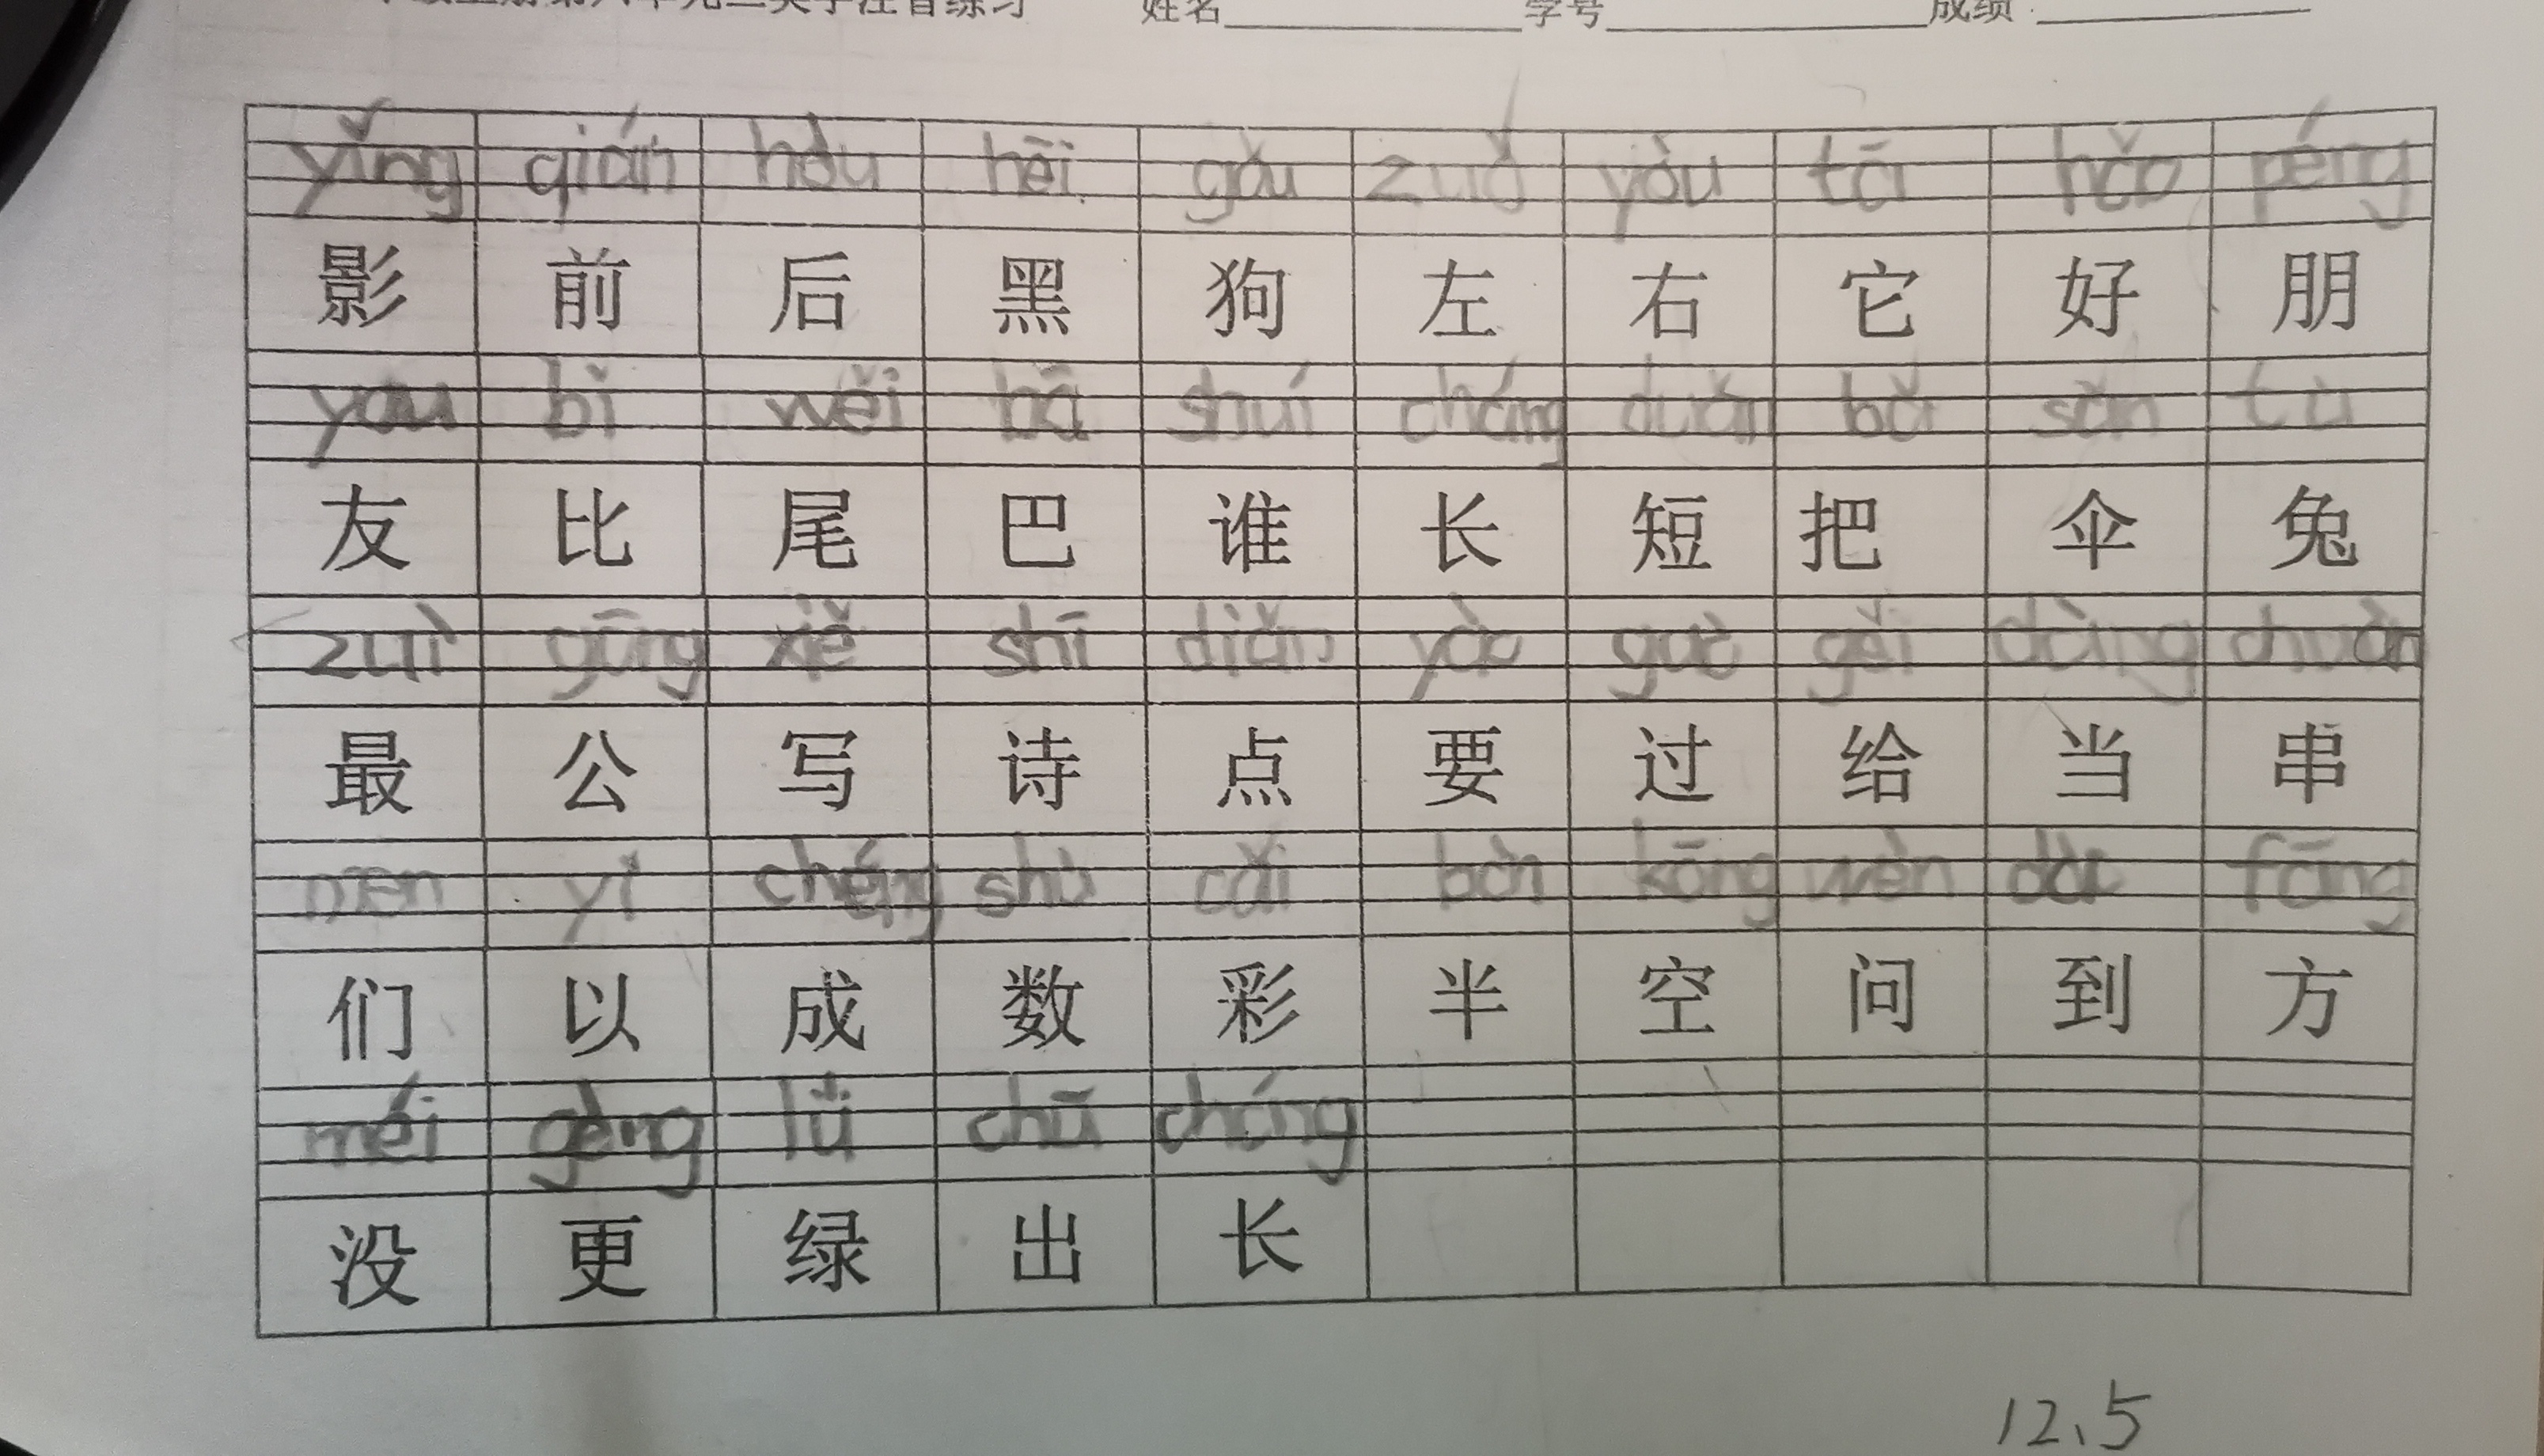 姓名 学号 成绩
yǐng qián hòu hēi gǒu zuǒ yòu tā hǎo péng
影 前 后 黑 狗 左 右 它 好 朋
bǐ wěi bā shuí cháng duǎn bǎ sǎn tù
友 比 尾 巴 谁 长 短 把 伞 兔
zuì gōng xiě shī diǎn yào guò gěi dāng chuàn
最 公 写 诗 点 要 过 给 当 串
men yǐ chéng shù cǎi bàn kōng wèn dào fāng
们 以 成 数 彩 半 空 问 到 方
méi gèng lǜ chū cháng
没 更 绿 出 长
12、5